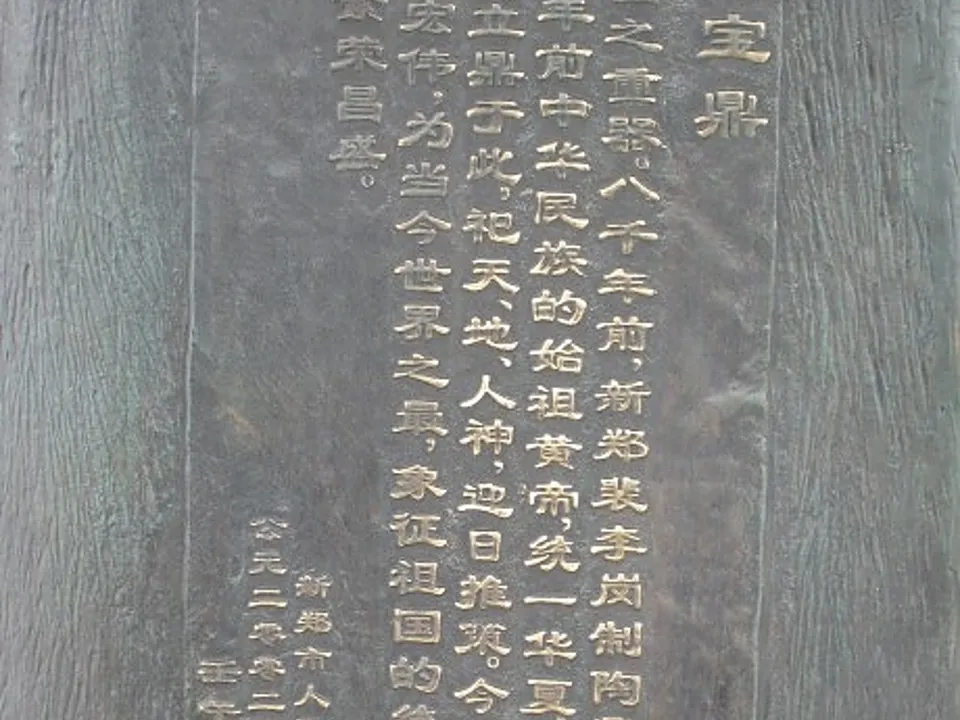 宝鼎
之重器。八千年前，新郑裴李岗制陶
年前中华民族的始祖黄帝，统一华夏
立鼎于此，祀天、地、人神，迎日推策。今
宏伟，为当今世界之最，象征祖国的
繁荣昌盛。
新郑市人
公元二零零二
壬午